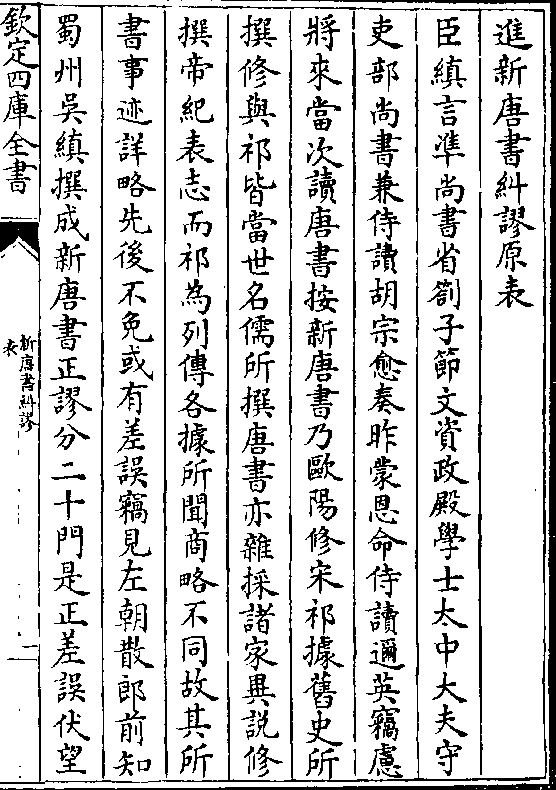 進新唐書糾謬原表
臣縝言準尚書省劄子節文資政殿學士太中大夫守
吏部尚書兼侍讀胡宗愈奏昨蒙恩命侍讀邇英竊慮
將來當次讀唐書按新唐書乃歐陽修宋祁據舊史所
撰修與祁皆當世名儒所撰唐書亦雜採諸家異說修
撰帝紀表志而祁為列傳各據所聞商略不同故其所
書事迹詳略先後不免或有差誤竊見左朝散郎前知
蜀州吳縝撰成新唐書正謬分二十門是正差誤伏望
欽定四庫全書
新唐書糾謬
表
一